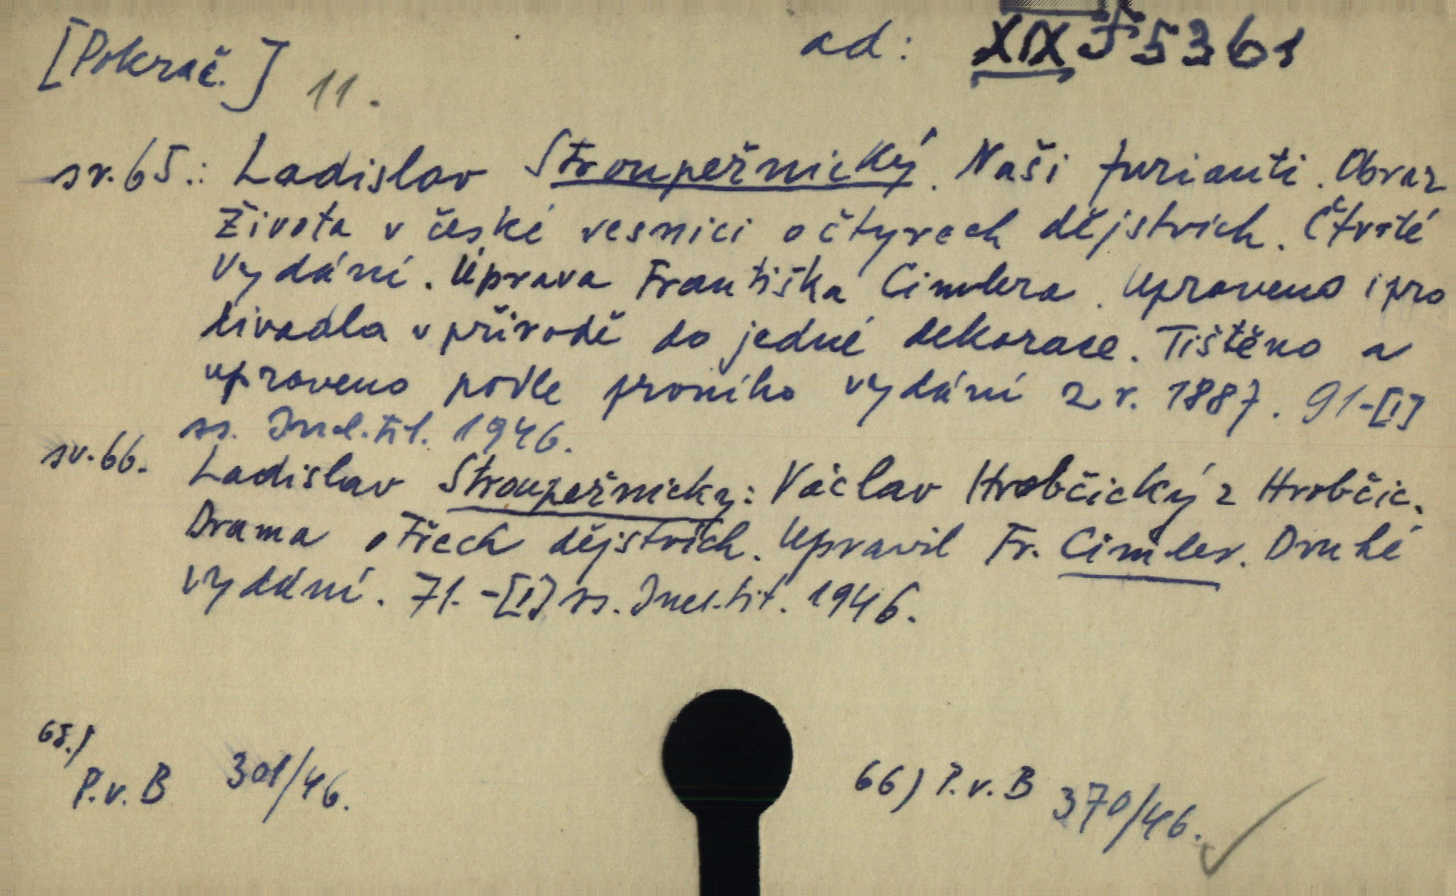 [Pokrač.] 11. ad: XIX J 5361
sv. 65.: Ladislav Stroupežnický. Naši furianti. Obraz
života v české vesnici o čtyrech dějstvích. Čtvrté
vydání. Úprava Františka Cimlera. Upraveno i pro
divadla v přírodě do jedné dekorace. Tištěno a
upraveno podle prvního vydání z r. 1887. 91-[I]
ss. Incl. tit. 1946.
sv. 66. Ladislav Stroupežnický: Václav Hrobčický z Hrobčic.
Drama o třech dějstvích. Upravil Fr. Cimler. Druhé
vydání. 71.-[I] ss. Incl. tit. 1946.
65.)
P.v.B 301/46. 66) P.v.B 370/46.